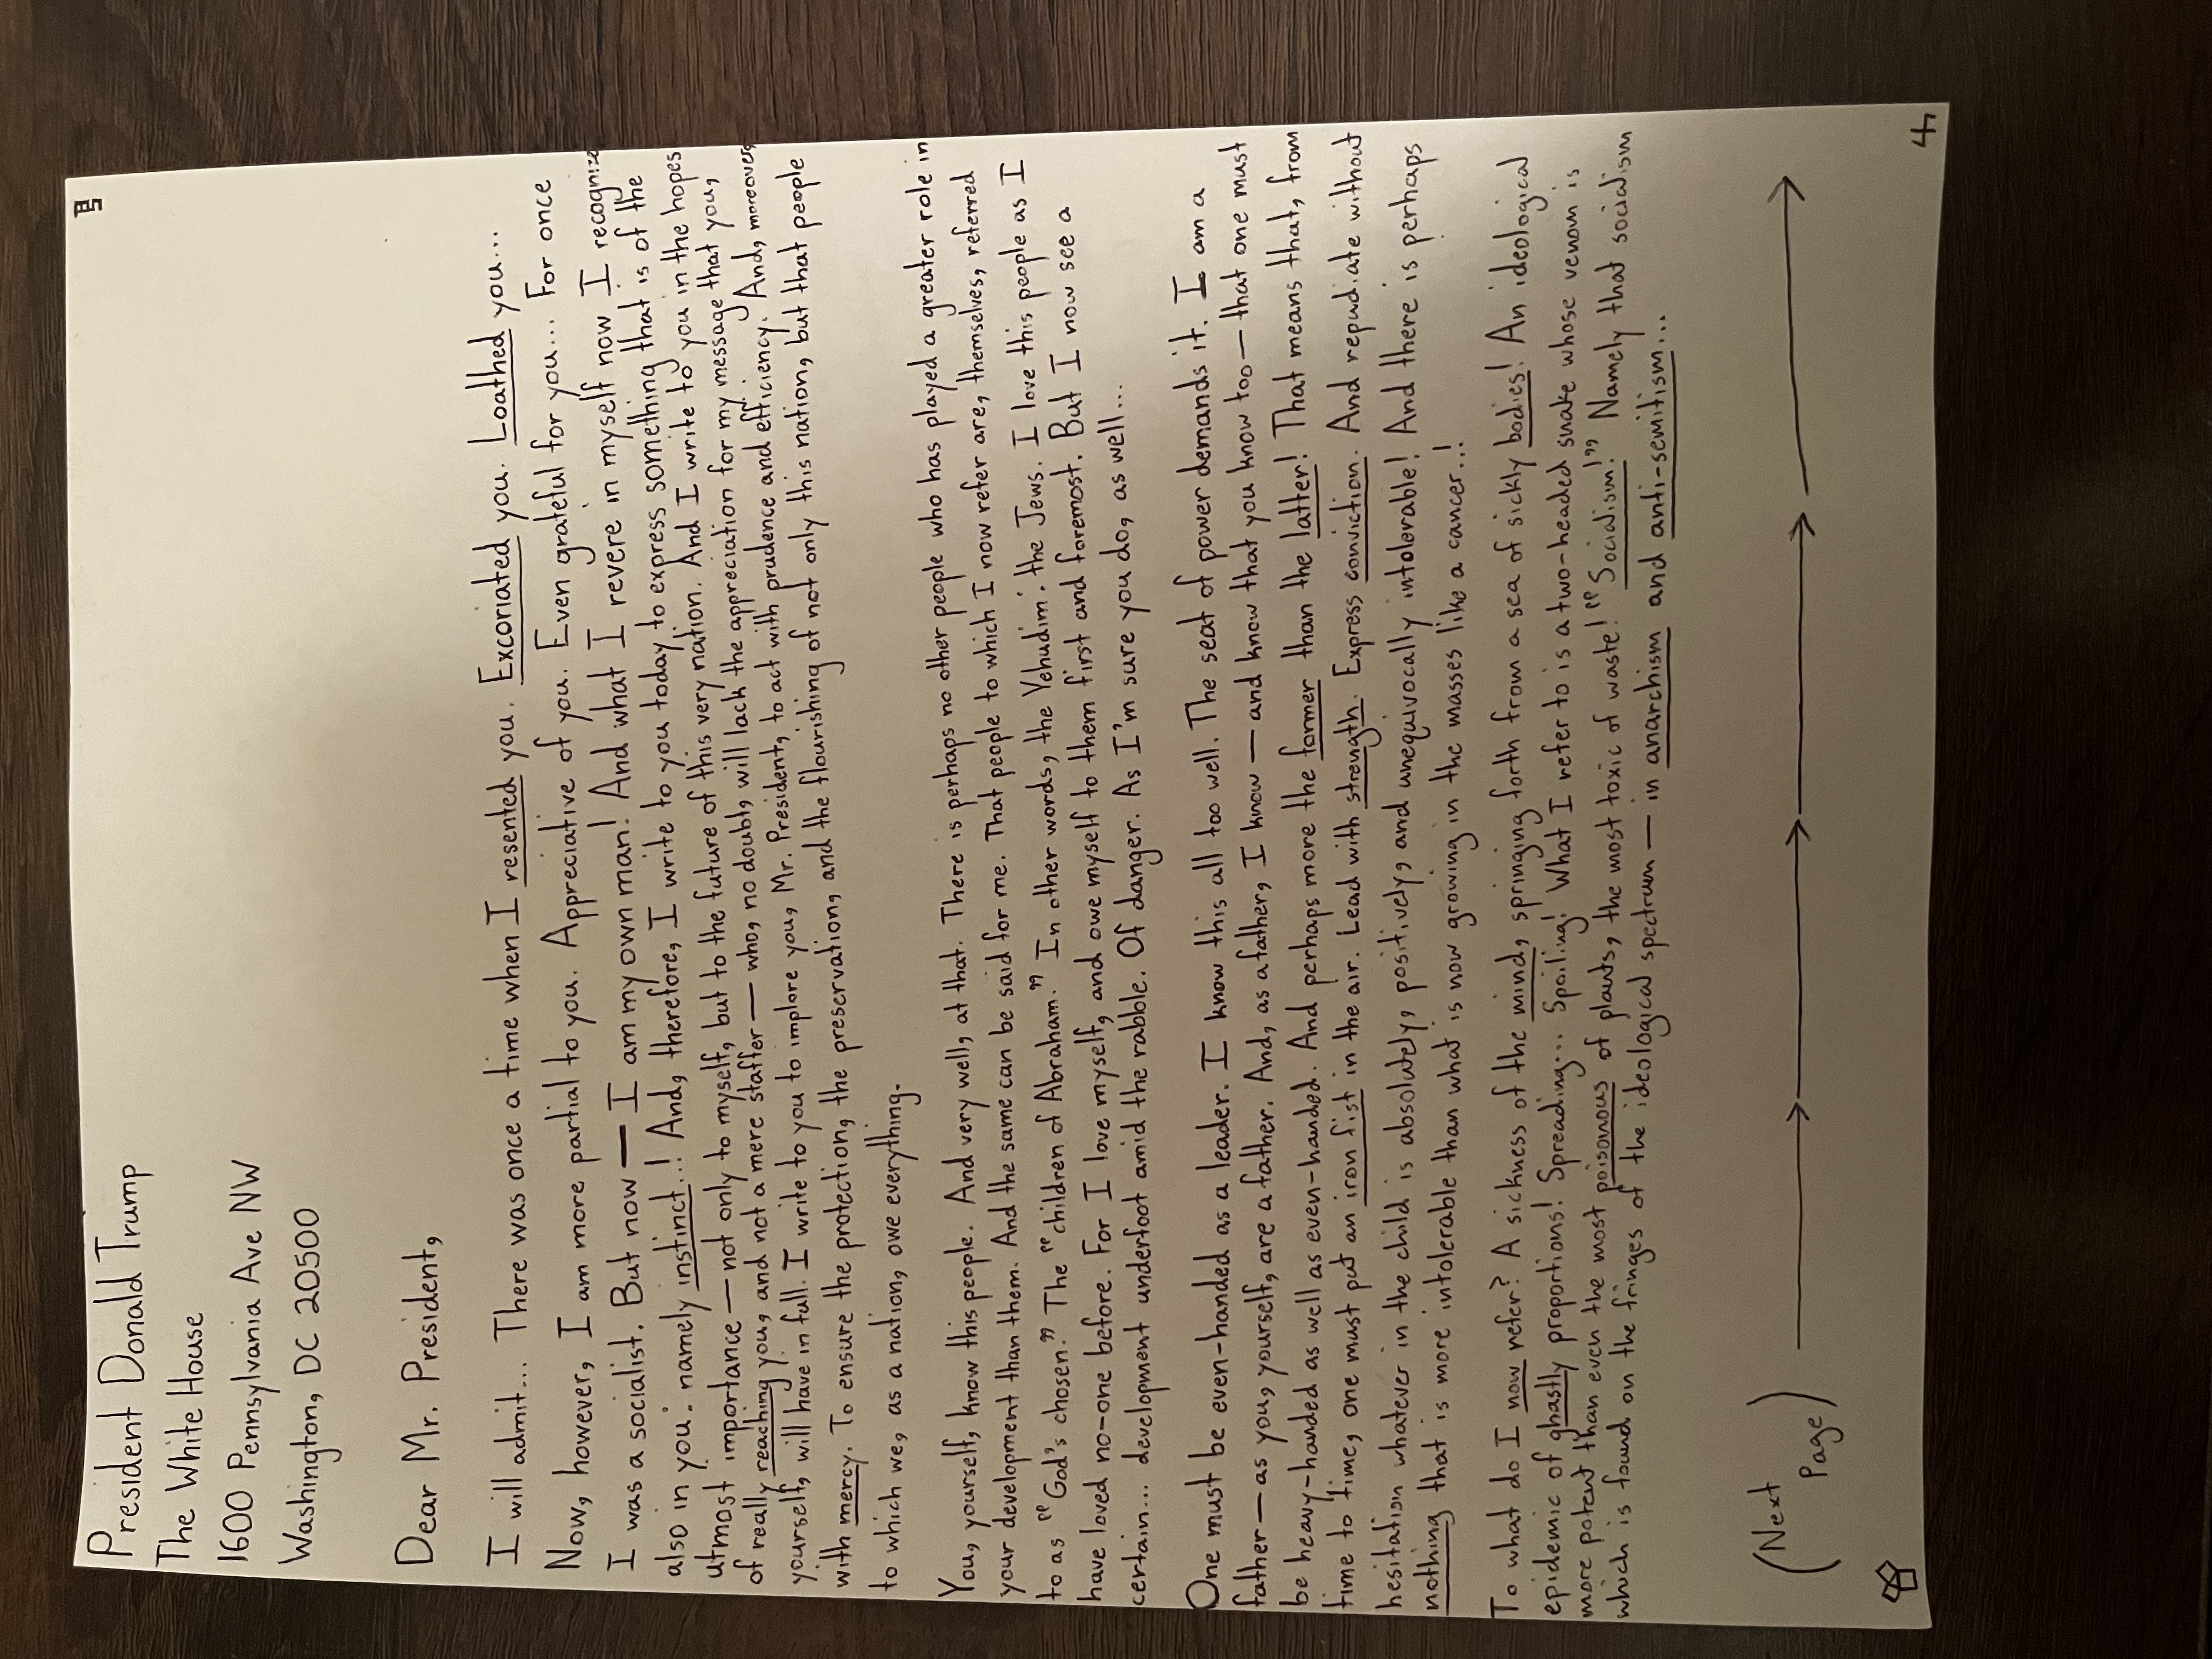 President Donald Trump
The White House
1600 Pennsylvania Ave NW
Washington, DC 20500
Dear Mr. President,
I will admit... There was once a time when I resented you. Excoriated you. Loathed you...
Now, however, I am more partial to you. Appreciative of you. Even grateful for you... For once
I was a socialist. But now — I am my own man! And what I revere in myself now I recognize
also in you: namely instinct..! And, therefore, I write to you today to express something that is of the
utmost importance — not only to myself, but to the future of this very nation. And I write to you in the hopes
of really reaching you, and not a mere staffer — who, no doubt, will lack the appreciation for my message that you,
yourself, will have in full. I write to you to implore you, Mr. President, to act with prudence and efficiency. And, moreover,
with mercy. To ensure the protection, the preservation, and the flourishing of not only this nation, but that people
to which we, as a nation, owe everything.
You, yourself, know this people. And very well, at that. There is perhaps no other people who has played a greater role in
your development than them. And the same can be said for me. That people to which I now refer are, themselves, referred
to as "God's chosen." The "children of Abraham." In other words, the Yehudim: the Jews. I love this people as I
have loved no-one before. For I love myself, and owe myself to them first and foremost. But I now see a
certain... development underfoot amid the rabble. Of danger. As I'm sure you do, as well...
One must be even-handed as a leader. I know this all too well. The seat of power demands it. I am a
father — as you, yourself, are a father. And, as a father, I know — and know that you know too — that one must
be heavy-handed as well as even-handed. And perhaps more the former than the latter! That means that, from
time to time, one must put an iron fist in the air. Lead with strength. Express conviction. And repudiate without
hesitation whatever in the child is absolutely, positively, and unequivocally intolerable! And there is perhaps
nothing that is more intolerable than what is now growing in the masses like a cancer..!
To what do I now refer? A sickness of the mind, springing forth from a sea of sickly bodies! An ideological
epidemic of ghastly proportions! Spreading... Spoiling! What I refer to is a two-headed snake whose venom is
more potent than even the most poisonous of plants, the most toxic of waste! "Socialism!" Namely that socialism
which is found on the fringes of the ideological spectrum — in anarchism and anti-semitism...
(Next
Page)
4